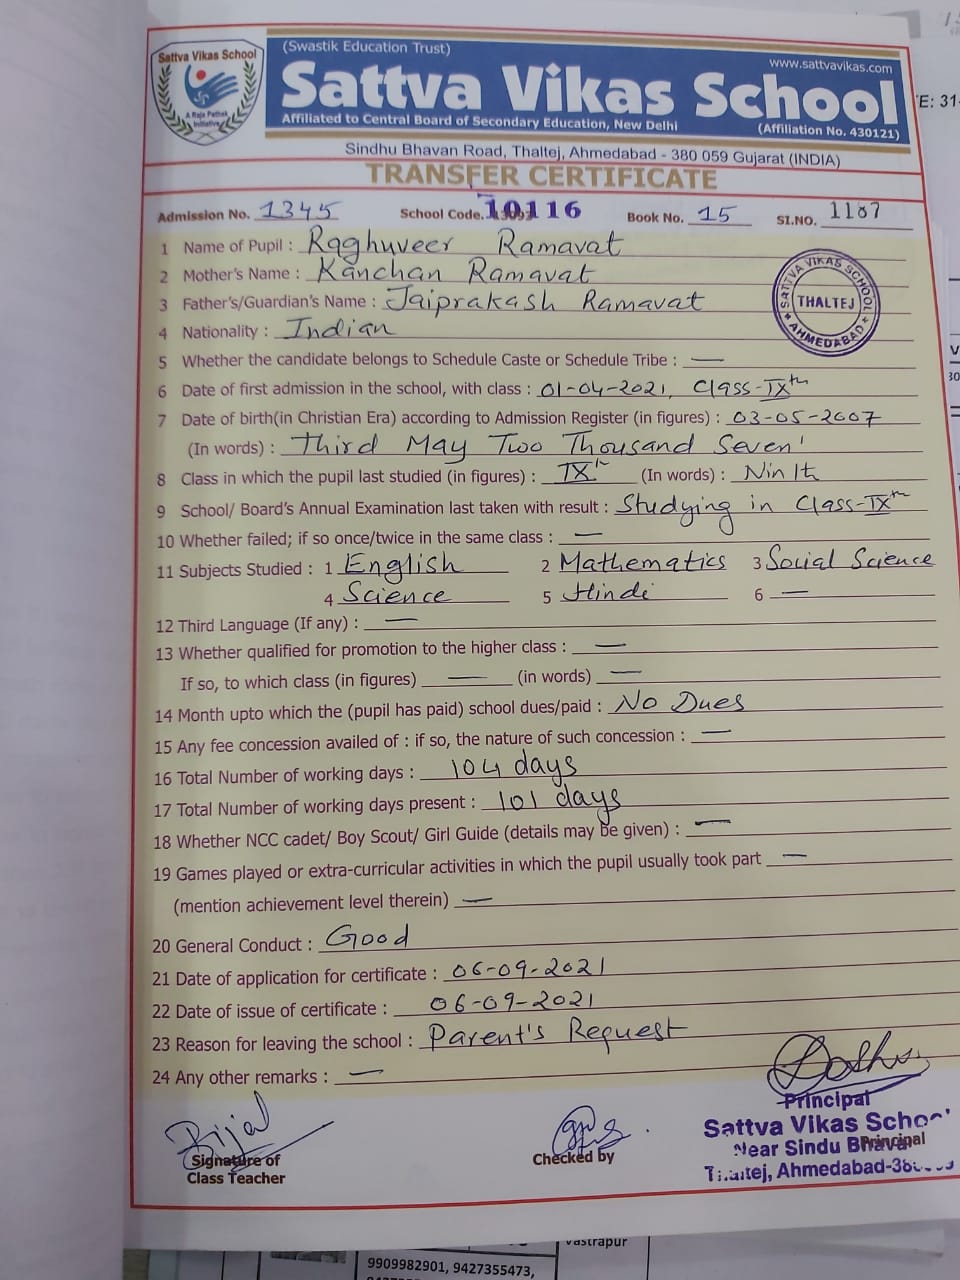 Sattva Vikas School
A Raja Pathak
Initiative
(Swastik Education Trust)
www.sattvavikas.com
Sattva Vikas School
Affiliated to Central Board of Secondary Education, New Delhi
(Affiliation No. 430121)
Sindhu Bhavan Road, Thaltej, Ahmedabad - 380 059 Gujarat (INDIA)
TRANSFER CERTIFICATE
E: 31-
Admission No. 1345 School Code. 10116 Book No. 15 SI.NO. 1187
1 Name of Pupil : Raghuveer Ramavat
2 Mother's Name : Kanchan Ramavat
3 Father's/Guardian's Name : Jaiprakash Ramavat
SATTVA VIKAS SCHOOL
THALTEJ
AHMEDABAD
4 Nationality : Indian
5 Whether the candidate belongs to Schedule Caste or Schedule Tribe : —
6 Date of first admission in the school, with class : 01-04-2021, Class-IXth
7 Date of birth(in Christian Era) according to Admission Register (in figures) : 03-05-2007
(In words) : Third May Two Thousand Seven'
8 Class in which the pupil last studied (in figures) : IXth (In words) : Ninth
9 School/ Board's Annual Examination last taken with result : Studying in Class-IXth
10 Whether failed; if so once/twice in the same class : —
11 Subjects Studied : 1 English 2 Mathematics 3 Social Science
4 Science 5 Hindi 6 —
12 Third Language (If any) : —
13 Whether qualified for promotion to the higher class : —
If so, to which class (in figures) — (in words) —
14 Month upto which the (pupil has paid) school dues/paid : No Dues
15 Any fee concession availed of : if so, the nature of such concession : —
16 Total Number of working days : 104 days
17 Total Number of working days present : 101 days
18 Whether NCC cadet/ Boy Scout/ Girl Guide (details may be given) : —
19 Games played or extra-curricular activities in which the pupil usually took part —
(mention achievement level therein) —
20 General Conduct : Good
21 Date of application for certificate : 06-09-2021
22 Date of issue of certificate : 06-09-2021
23 Reason for leaving the school : Parent's Request
24 Any other remarks : —
Bijal
Signature of
Class Teacher
Checked by
Principal
Sattva Vikas School
Near Sindu Bhavan
Principal
Thaltej, Ahmedabad-
Vastrapur
9909982901, 9427355473,